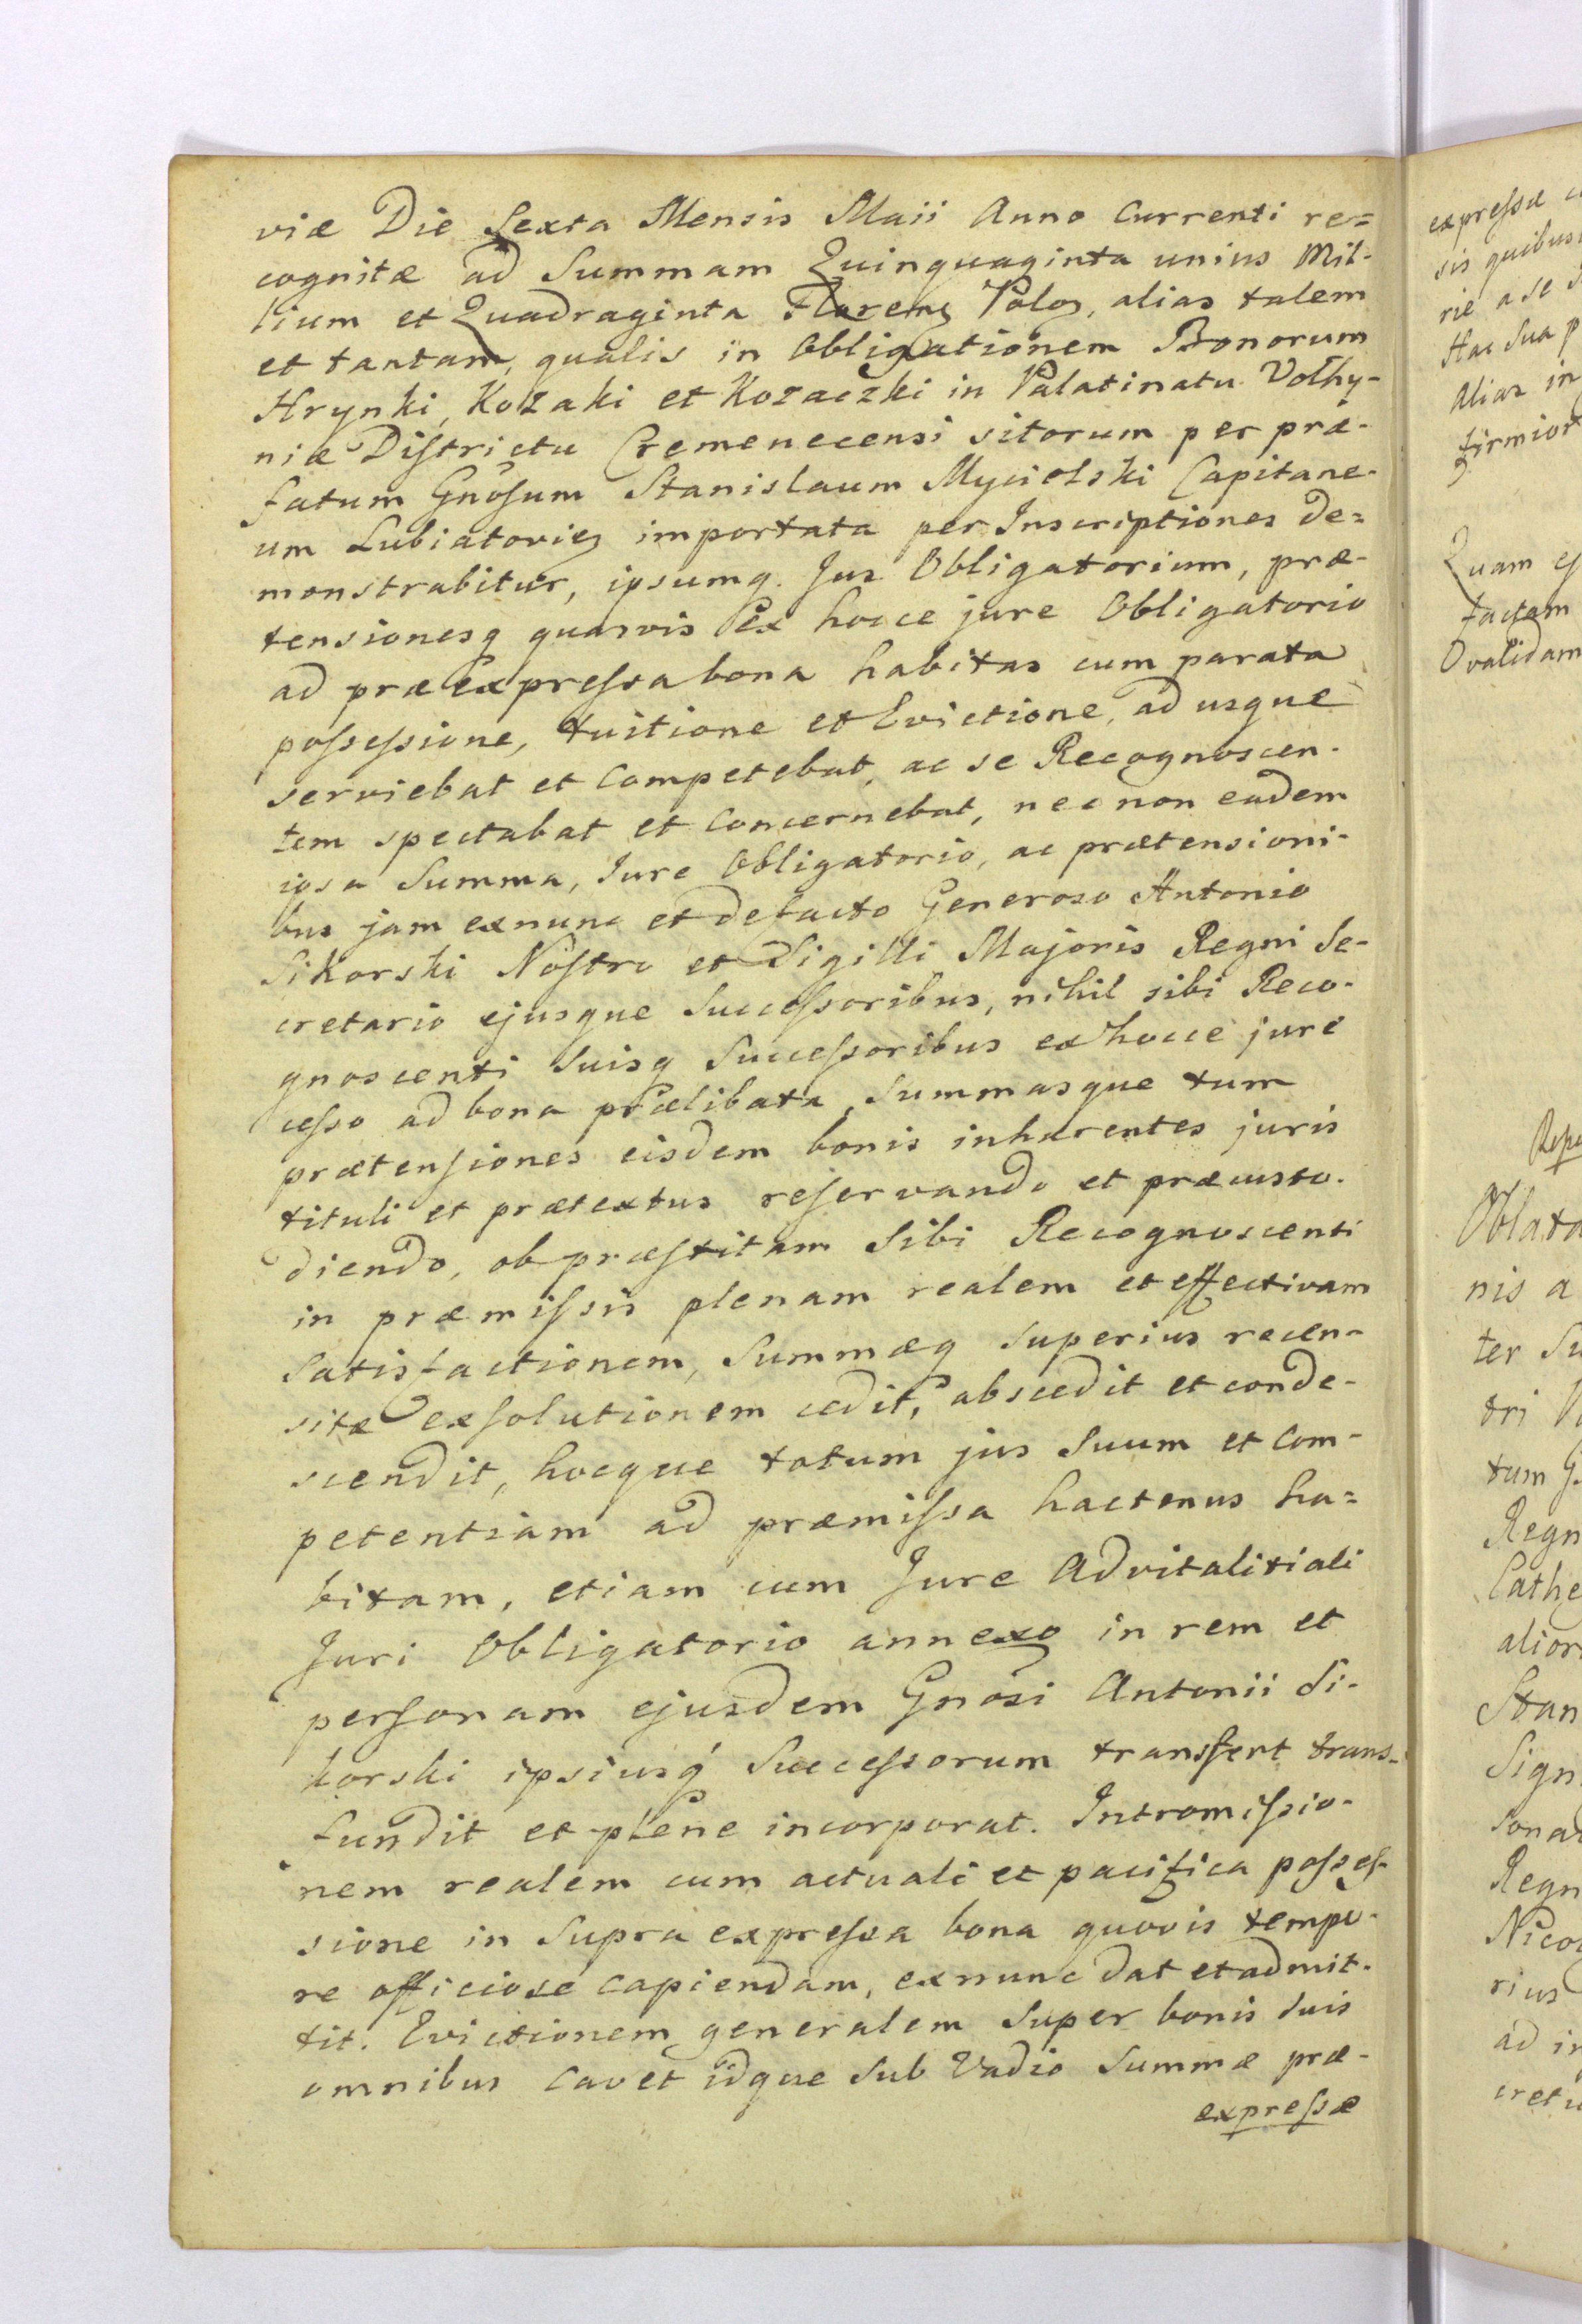 viæ Die Sexta Mensis Maii Anno Currenti re=
cognitæ ad Summam Quinquaginta unius Mil-
lium et Quadraginta Floren: Polo:, alias talem
et tantam, qualis in Obligationem Bonorum
Hrynki, Kozaki et Kozaczki in Palatinatu Volhy-
niæ Districtu Cremenecensi sitorum per præ-
fatum Gnosum Stanislaum Mycielski Capitane-
um Lubiatovie: importata per Inscriptiones de=
monstrabitur, ipsumq. Jus Obligatorium, præ-
tensionesq quasvis Ex hocce jure Obligatorio
ad præexpressa bona habitas cum parata
possessione, tuitione et Evictione, ad usque
serviebat et Competebat, ac se Recognoscen-
tem spectabat et Concernebat, necnon eadem
ipsa Summa, Jure Obligatorio, ac prætensioni-
bus jam exnunc et defacto Generoso Antonio
Sikorski Nostro et Sigilli Majoris Regni Se-
cretario ejusque Successoribus, nihil sibi Reco-
gnoscenti Suisq Successoribus ex hocce jure
cesso ad bona prælibata, Summasque tum
prætensiones eisdem bonis inhærentes juris
tituli et prætextus reservando et præcusto-
diendo, ob præstitam Sibi Recognoscenti
in præmissis plenam realem et effectivam
Satisfactionem, Summæq superius recen-
sitæ exsolutionem cedit, abscedit et conde-
scendit, hocque totum jus Suum et Com-
petentiam ad præmissa hactenus ha=
bitam, etiam cum Jure Advitalitiali
Juri Obligatorio annexo in rem et
personam ejusdem Gnosi Antonii Si-
korski ipsiusq Successorum transfert trans-
fundit et plene incorporat. Intromissio-
nem realem cum actuali et pacifica posses-
sione in Supra expressa bona quovis tempo-
re officiose capiendam, exnunc dat et admit-
tit. Evictionem generalem Super bonis Suis
omnibus Cavet idque Sub Vadio Summæ præ-
expressæ
expressæ
sis quibus
rie a se
Hac Sua p
Alias in
firmior
Quam
factam
validam
Oblata
nis a
ter Su
tri
tum G
Regn
Cathe
alior
Stan
Sign
sona
Regn
Nico
rius
ad in
cretu